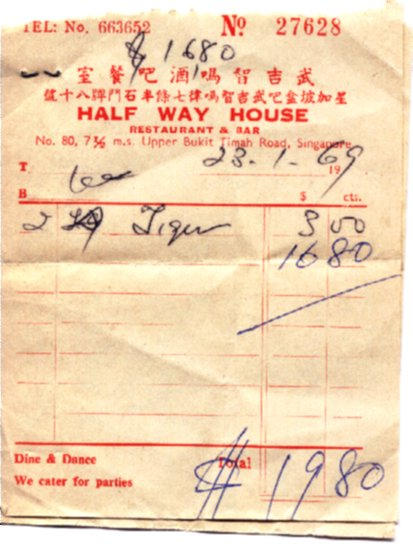 TEL: No. 663652 No 27628
$ 1680
武吉智嗎酒吧餐室
星加坡盎吧武吉智嗎律七條半石門牌八十號
HALF WAY HOUSE
RESTAURANT & BAR
No. 80, 7½ m.s. Upper Bukit Timah Road, Singapore
23.1.1969
T
B $ cts.
2 Tiger 3 00
16 80
Dine & Dance Total $ 19 80
We cater for parties